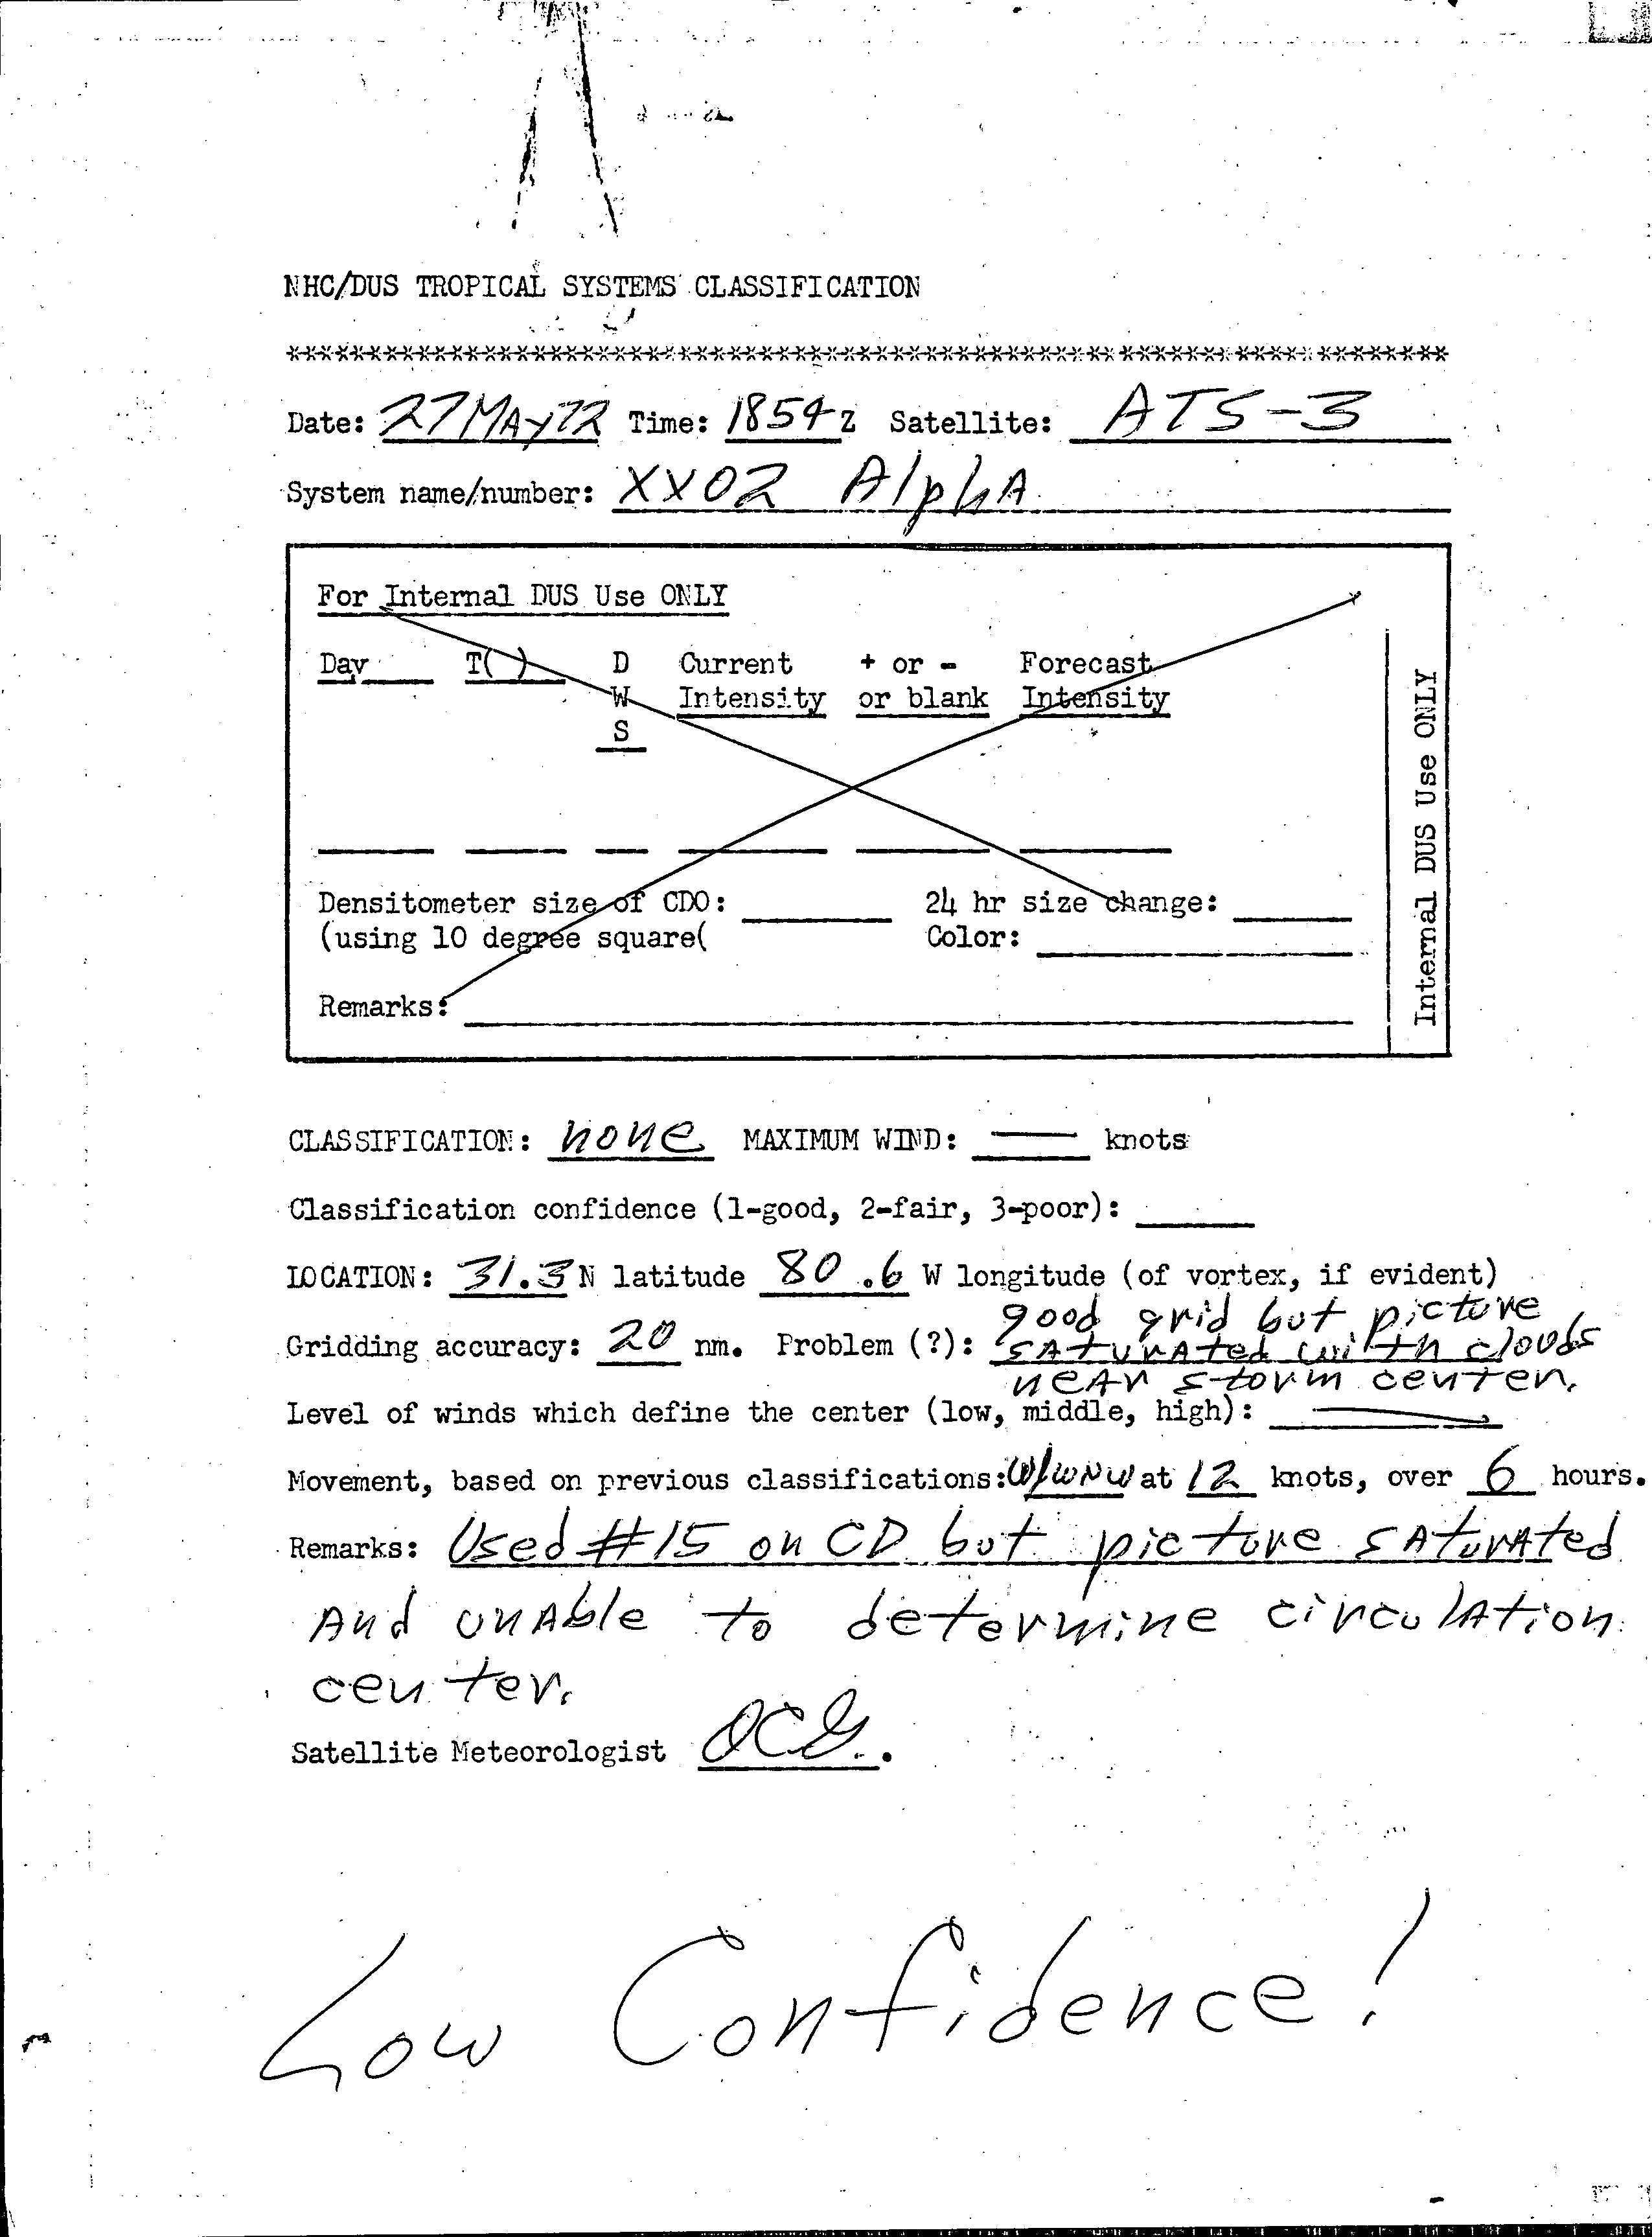 NHC/DUS TROPICAL SYSTEMS CLASSIFICATION
************************************************************************
Date: 27 MAy 72 Time: 1854 Z Satellite: ATS-3
System name/number: XX02 AlphA
For Internal DUS Use ONLY
Day T( ) D Current + or - Forecast
W Intensity or blank Intensity
S
Densitometer size of CDO: 24 hr size change:
(using 10 degree square( Color:
Remarks:
Internal DUS Use ONLY
CLASSIFICATION: none MAXIMUM WIND: — knots
Classification confidence (1-good, 2-fair, 3-poor):
LOCATION: 31.3 N latitude 80.6 W longitude (of vortex, if evident)
Gridding accuracy: 20 nm. Problem (?): good grid but picture
SAturAted with clouds
neAr storm center.
Level of winds which define the center (low, middle, high): —
Movement, based on previous classifications: W/WNW at 12 knots, over 6 hours.
Remarks: Used #15 on CD but picture sAturAted
And unAble to determine circulAtion
center.
Satellite Meteorologist
Low Confidence!